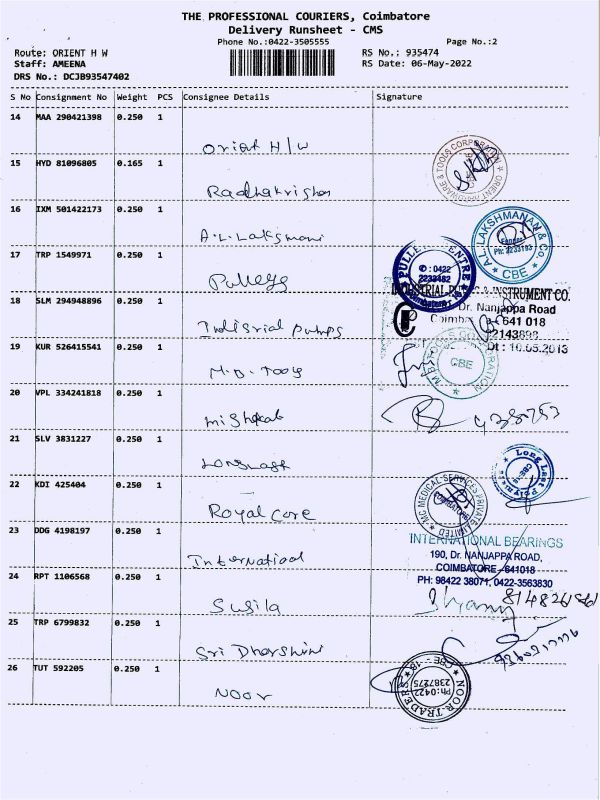 THE PROFESSIONAL COURIERS, Coimbatore
Delivery Runsheet - CMS
Phone No.:0422-3505555 Page No.:2
Route: ORIENT H W RS No.: 935474
Staff: AMEENA RS Date: 06-May-2022
DRS No.: DCJB93547402
S No Consignment No Weight PCS Consignee Details Signature
14 MAA 290421398 0.250 1
Orient H/W
ORIENT HARDWARE & TOOLS CORPORATION
15 HYD 81096805 0.165 1
Radhakrishan
16 IXM 501422173 0.250 1
A.L. Lakshmani
A.L. LAKSHMANAN & Co.
CBE
17 TRP 1549971 0.250 1
Pulleys
PULLEY CENTRE
✆ : 0422
2233482
18 SLM 294948896 0.250 1
Indisrial pumps
INDUSTRIAL PUMPS & INSTRUMENT CO.
Dr. Nanjappa Road
641 018
19 KUR 526415541 0.250 1
M.D. Tools
CBE
Dt : 10.05.2013
20 VPL 334241818 0.250 1
21 SLV 3831227 0.250 1
Longlast
Long Last
22 KDI 425404 0.250 1
Royal Core
MC MEDICAL SERVICES PRIVATE LIMITED
COIMBATORE
23 DDG 4198197 0.250 1
INTERNATIONAL BEARINGS
190, Dr. NANJAPPA ROAD,
COIMBATORE - 641018
PH: 98422 38071, 0422-3563830
24 RPT 1106568 0.250 1
Susila
25 TRP 6799832 0.250 1
Sri Dharshini
26 TUT 592205 0.250 1
Noor
NOOR TRADERS
Ph:0422
2387275
CBE - 18